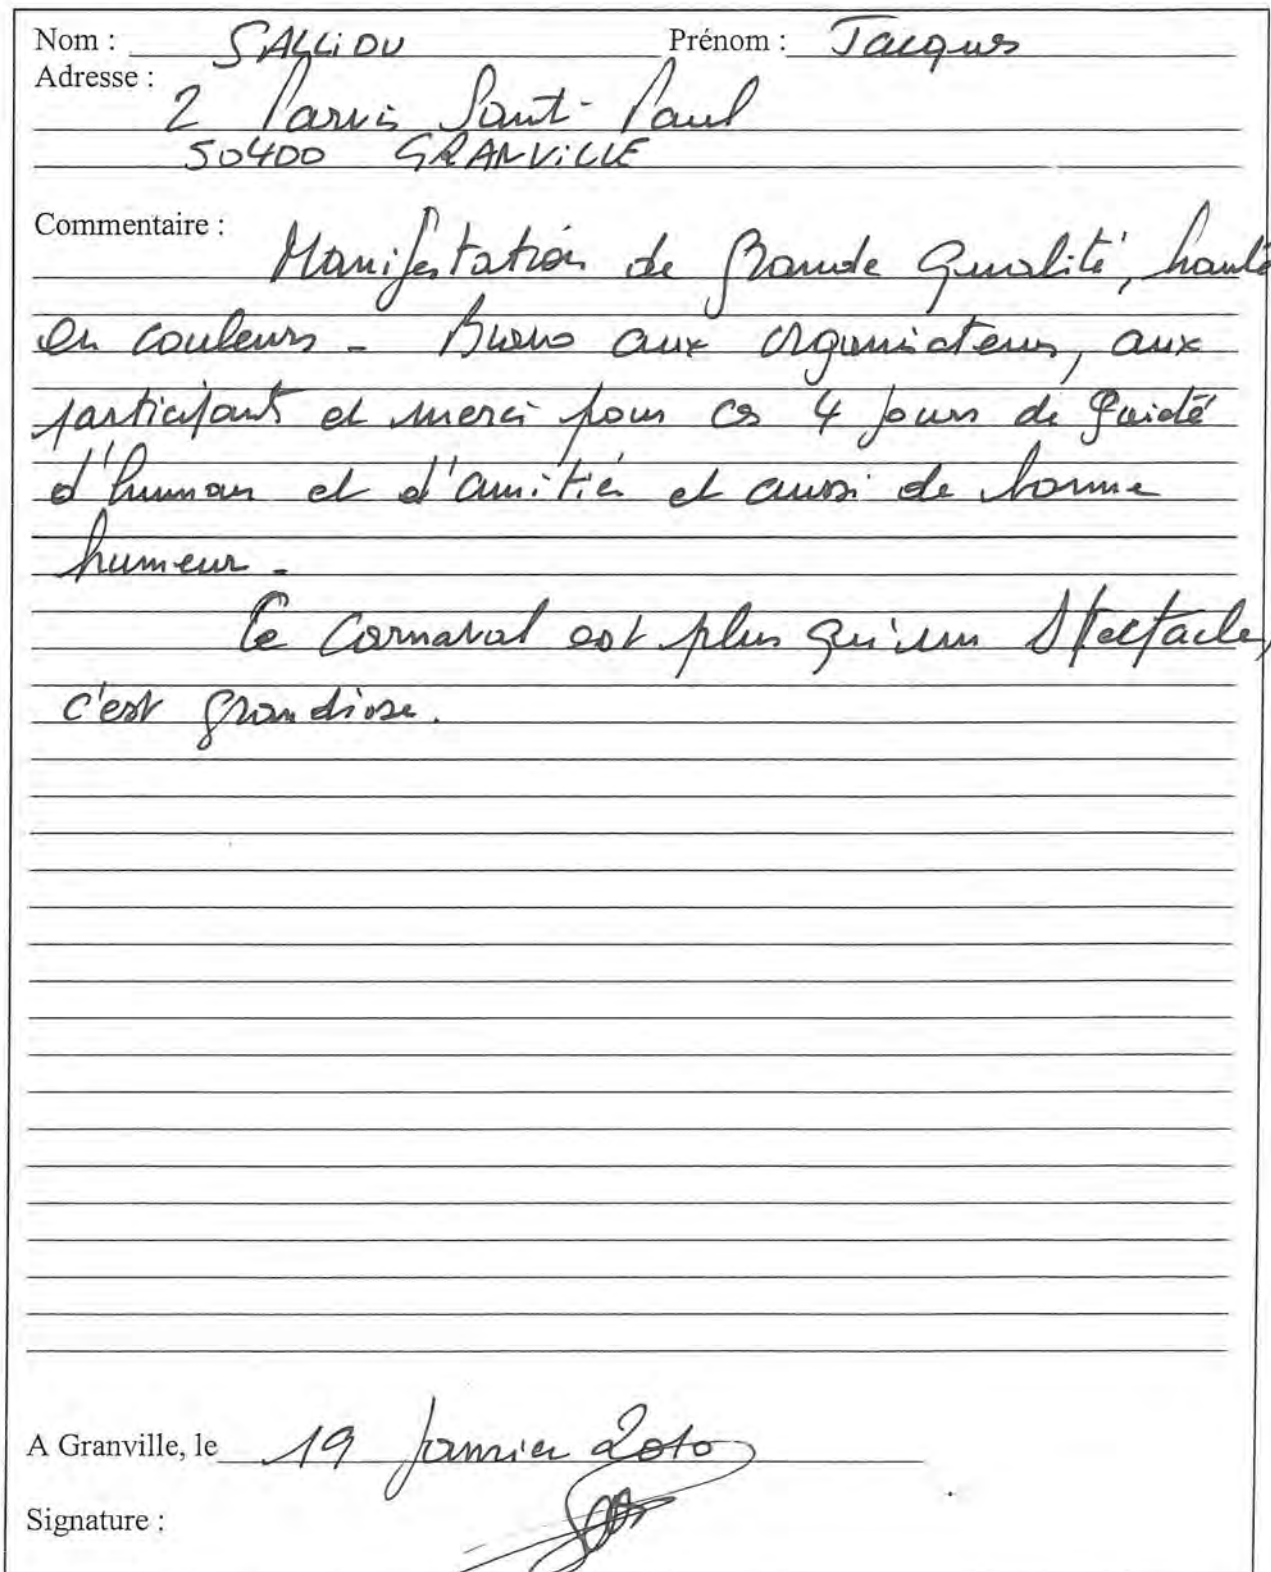 Nom : SALLIOU Prénom : Jacques
Adresse :
2 Parvis Saint-Paul
50400 GRANVILLE
Commentaire :
Manifestation de grande qualité, haute
en couleurs - Bravo aux organisateurs, aux
participants et merci pour ces 4 jours de gaieté
d'humour et d'amitié et aussi de bonne
humeur -
Ce Carnaval est plus qu'un spectacle,
c'est grandiose.
A Granville, le 19 janvier 2010
Signature :